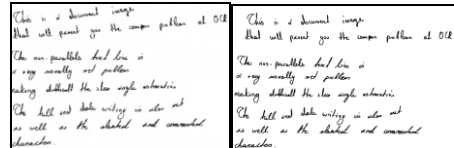 This is a document image
that will present you the common problem of OCR
The non-parallele text line is
a very usually problem
making difficult the slope angle estimation
The hill and dale writing is also
as well as the slanted and connected
characters.
This is a document image
that will present you the common problem of OCR
The non-parallele text line is
a very usually problem
making difficult the slope angle estimation
The hill and dale writing is also
as well as the slanted and connected
characters.